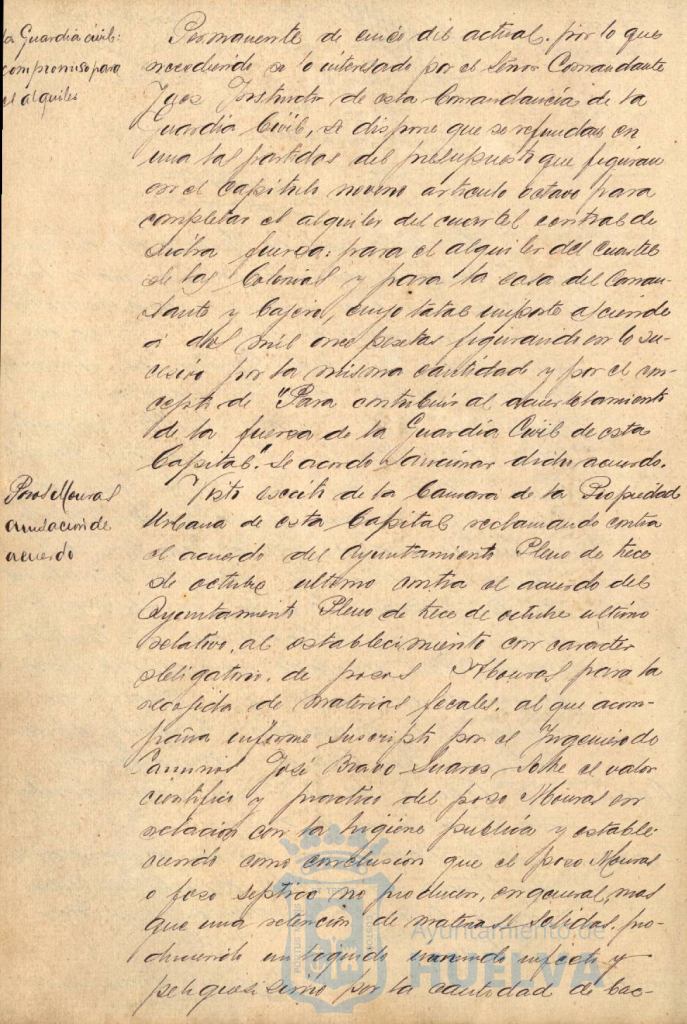 la Guardia civil:
compromiso para
el alquiler
Permanente de cinco del actual, por lo que
accediendo a lo interesado por el Señor Comandante
Juez Instructor de esta Comandancia de la
Guardia Civil, se dispone que se refundan en
una las partidas del presupuesto que figuran
en el capítulo noveno artículo octavo para
completar el alquiler del cuartel central de
dicha fuerza: para el alquiler del cuartel
de las Colonias y para la casa del Coman-
dante y Cajero, cuyo total importe asciende
a dos mil once pesetas figurando en lo su-
cesivo por la misma cantidad y por el con-
cepto de "Para contribuir al acuartelamiento
de la fuerza de la Guardia Civil de esta
Capital". Se acordó sancionar dicho acuerdo.
Pozos Mouras
anulación de
acuerdo
Visto escrito de la Camara de la Propiedad
Urbana de esta Capital reclamando contra
el acuerdo del Ayuntamiento Pleno de trece
de octubre ultimo contra el acuerdo del
Ayuntamiento Pleno de trece de octubre ultimo
relativo, al establecimiento con caracter
obligatorio, de pozos Mouras para la
recogida de materias fecales, al que acom-
paña informe suscripto por el Ingeniero de
Caminos José Bravo Suarez sobre el valor
cientifico y practico del pozo Mouras en
relación con la higiene publica y estable-
ciendo como conclusión que el pozo Mouras
o foso septico no producen, en general, mas
que una retención de materias solidas, pro-
duciendo un liquido inmundo infecto y
peligrosisimo por la cantidad de bac-
Ayuntamiento de
HUELVA